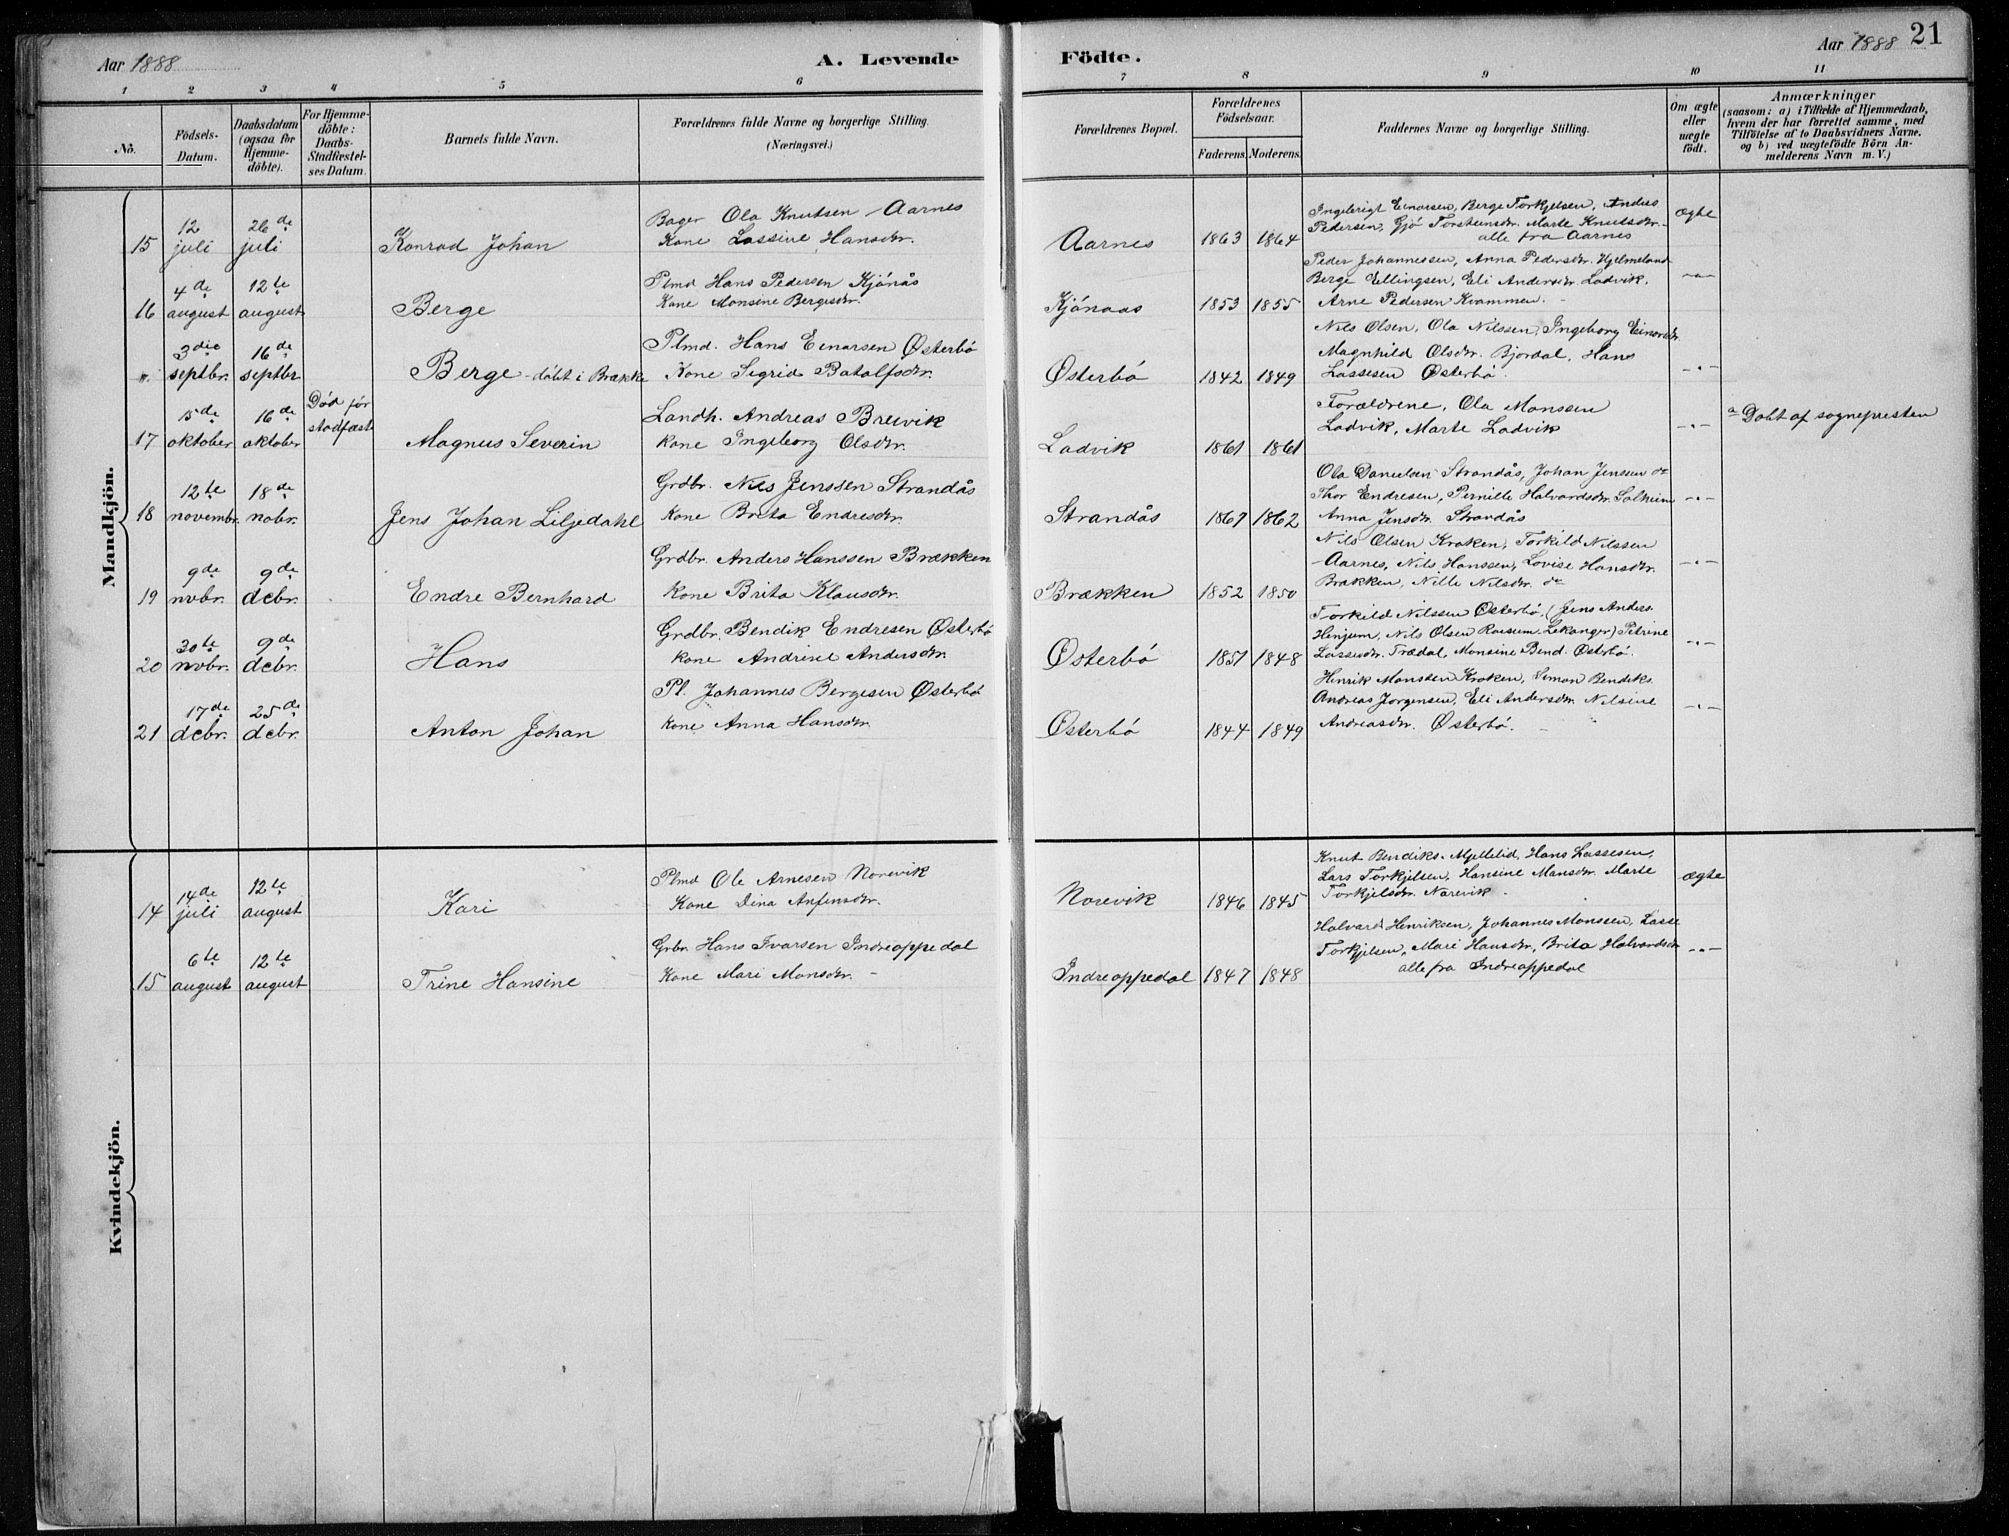 Aar 1888
A. Levende
Födte.
Aar 1888
21
1 2 3 4 5 6 7 8 9 10 11
No.
Födsels-
Datum.
Daabsdatum
(ogsaa for
Hjemme-
döbte).
For Hjemme-
döbte:
Daabs-
Stadfæstel-
ses Datum.
Barnets fulde Navn.
Forældrenes fulde Navne og borgerlige Stilling.
(Næringsvei.)
Forældrenes Bopæl.
Forældrenes
Födselsaar.
Faderens. Moderens.
Faddernes Navne og borgerlige Stilling.
Om ægte
eller
uægte
födt.
Anmærkninger
(saasom: a) i Tilfælde af Hjemmedaab,
hvem der har forrettet samme, med
Tilföielse af to Daabsvidners Navne.
og b) ved uægtefödte Börn An-
melderens Navn m. V.)
Mandkjön.
15 12 juli 26de juli Konrad Johan
Bager Ola Knutsen Aarnes
Kone Lassine Hansdtr.
Aarnes 1863 1864
Ingebrigt Einarsen, Berge Torkjelsen, Anders
Pedersen, Gjø Torsteinsdtr. Marte Knutsdtr.
alle fra Aarnes
ægte
16 4de august 12te august Berge
Plmd Hans Pedersen Kjönås
Kone Monsine Bergesdtr.
Kjönaas 1853 1855
Peder Johannessen, Anna Pedersdtr. Hjelmeland
Berge Ellingsen, Eli Andersdtr. Ladvik.
Arne Pedersen Kvammen.
-"-
". 3die septbr. 16de septbr Berge - döbt i Brække
Plmd. Hans Einarsen Østerbö
Kone Sigrid Batalfsdtr.
Østerbö 1842 1849
Nils Olsen, Ola Nilssen, Ingeborg Einarsdtr.
Magnhild Olsdtr. Bjordal, Hans
Lassesen Østerbö.
-"-
17 15de oktober 16de oktober Död för stadfæst Magnus Severin
Landh. Andreas Breivik
Kone Ingeborg Olsdtr.
Ladvik 1861 1861
Forældrene, Ola Monssen
Ladvik, Marte Ladvik
-"-
a Döbt af sognepresten
18 12te novembr. 18de nobr. Jens Johan Liljedahl
Grdbr. Nils Jenssen Strandås
Kone Brita Endresdtr.
Strandås 1867 1862
Ola Danielsen Strandås, Johan Jenssen do
Thor Endresen, Pernille Halvardsdtr. Solheim
Anna Jensdtr. Strandås
-"-
19 9de nvbr. 9de debr. Endre Bernhard
Grdbr. Anders Hanssen Brækken
Kone Brita Klausdtr.
Brækken 1852 1850
Nils Olsen Kroken, Torkild Nilssen
Aarnes, Nils Hanssen, Lovise Hansdtr.
Brækken, Nille Nilsdtr. do
-"-
20 30te nvbr. 9de debr. Hans
Grdbr. Bendik Endresen Østerbö
Kone Andrine Andersdtr.
Østerbö 1851 1848
Torkild Nilssen Østerbö. (Jens Anders.
Hinjum, Nils Olsen Lekanger) Petrine
Lassesdtr. Trædal, Monsine Bend. Østerbö.
-"-
21 17de debr. 25de debr. Anton Johan
Pl. Johannes Bergesen Østerbö
Kone Anna Hansdtr.
Østerbö 1844 1849
Henrik Monssen Kroken, Simon Bendiks.
Andreas Jorgensen, Eli Andersdtr. Nilsine
Andreasdtr. Østerbö.
-"-
Kvindekjön.
14 14de juli 12te august Kari
Plmd Ole Arnesen Norevik
Kone Dina Anfinsdtr.
Norevik 1846 1845
Knut Bendiks. Mjelletid, Hans Lassesen,
Lars Torkjelsen, Hansine Mansdtr. Marte
Torkjelsdtr. Narevik.
ægte
15 6te august 12te august Trine Hansine
Grbr. Hans Ivarsen Indreoppedal
Kone Mari Monsdtr.
Indreoppedal 1847 1848
Halvard Henriksen, Johannes Monssen, Lasse
Torkjelsen, Mari Hansdtr, Brita Halvardsdtr
alle fra Indreoppedal
-"-